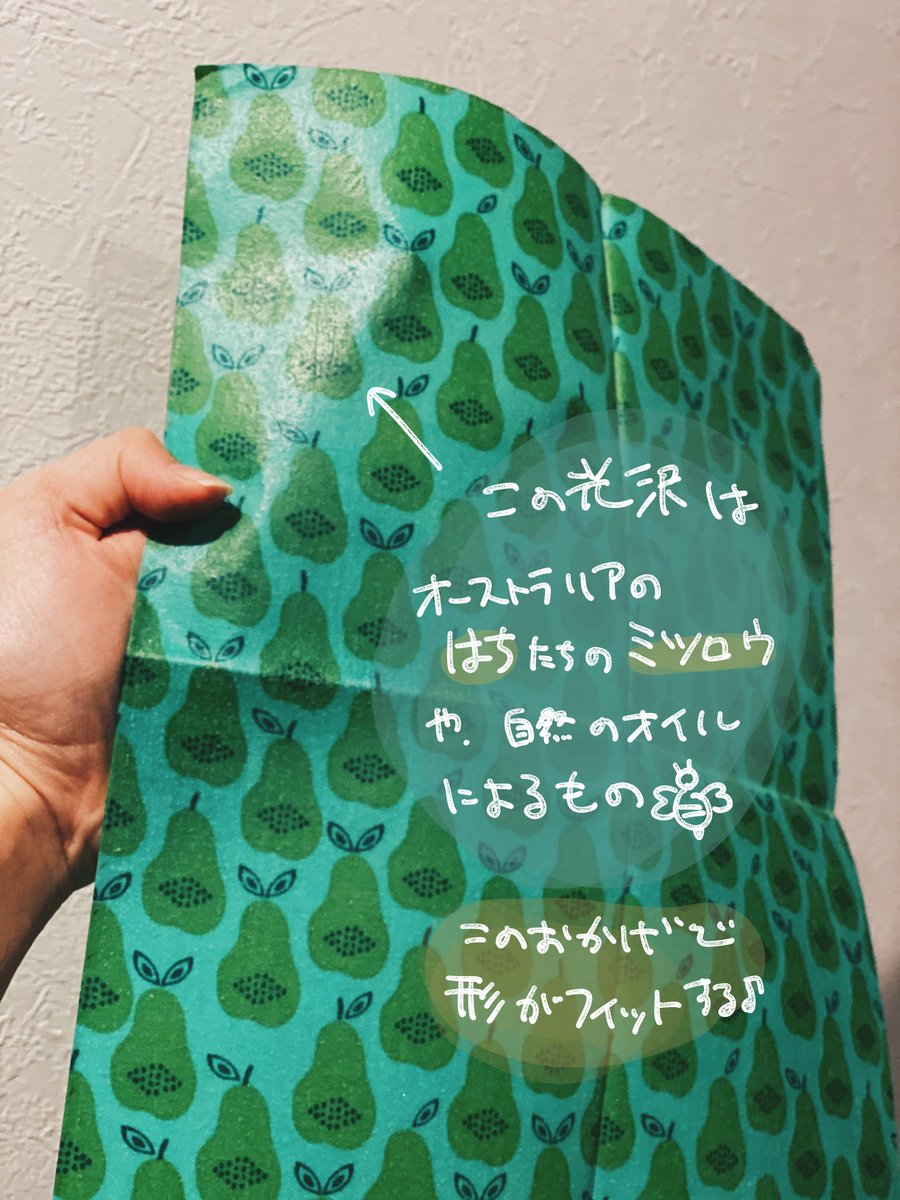 この光沢は
オーストラリアの
はちたちのミツロウ
や、自然のオイル
によるもの
このおかげで
形がフィットする♪